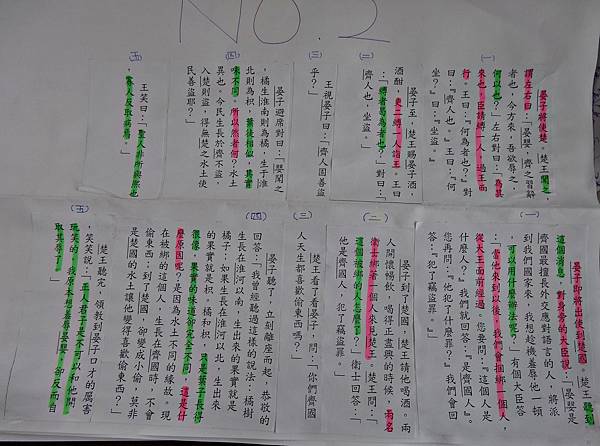 NO.2
(一)
晏子將使楚。楚王聞之，
謂左右曰：「晏嬰，齊之習辭
者也，今方來，吾欲辱之，
何以也？」左右對曰：「為其
來也，臣請縛一人，過王而
行。王曰：『何為者也？』對
曰：『齊人也。』王曰：『何
坐？』曰：『坐盜。』」
(二)
晏子至，楚王賜晏子酒，
酒酣，吏二縛一人詣王。王曰
：「縛者曷為者也？」對曰：「
齊人也，坐盜。」
(三)
王視晏子曰：「齊人固善盜
乎？」
(四)
晏子避席對曰：「嬰聞之
，橘生淮南則為橘，生于淮
北則為枳，葉徒相似，其實
味不同。所以然者何？水土
異也。今民生長於齊不盜，
入楚則盜，得無楚之水土使
民善盜耶？」
(五)
王笑曰：「聖人非所與熙也
，寡人反取病焉。」
(一)
晏子即將出使到楚國。楚王聽到
這個消息，對身旁的大臣說：「晏嬰是
齊國最擅長外交應對語言的人，將派
到我們國家來，我想趁機羞辱他一頓
，可以用什麼辦法呢？」有個大臣答
：「當他來到以後，我們會捆綁一個人，
從大王面前經過。您要問：『這個人是
什麼人？』我們就回答：『是齊國人。』
您再問：『他犯了什麼罪？』我們會回
答：『犯了竊盜罪。』」
(二)
晏子到了楚國，楚王請他喝酒。兩
人開懷暢飲，喝得正盡興的時候，兩名
衛士綁著一個人來見楚王。楚王問：「
這個被綁的人怎麼了？」衛士回答：「
他是齊國人，犯了竊盜罪。」
(三)
楚王看了看晏子，問：「你們齊國
人天生都喜歡偷東西嗎？」
(四)
晏子聽了，立刻離座而起，恭敬的
回答：「我曾經聽過這樣的說法：橘樹
生長在淮河以南，生出來的果實就是
橘子；如果生長在淮河以北，生出來
的果實就是枳。橘和枳，只是葉子長得
很像，果實的味道卻完全不同，這是什
麼原因呢？是因為水土不同的緣故。現
在被綁的這個人，生長在齊國時，不會
偷東西；到了楚國，卻變成小偷，莫非
是楚國的水土讓他變得喜歡偷東西？」
(五)
楚王聽完，領教到晏子口才的厲害
，笑笑說：「聖人君子是不可以和他開
玩笑的，我原本想羞辱晏嬰，卻反而自
取其辱了。」